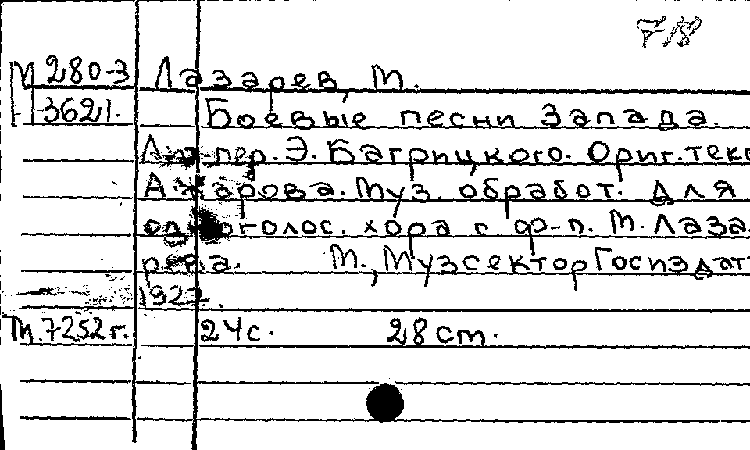 7/8
М 280-3 Лазарев, М.
3621. Боевые песни Запада.
пер. Э. Багрицкого. Ориг. текс
А. Жарова. Муз. обработ. для
одноголос. хора с ф-п. М. Лаза-
рева. М., Музсектор Госиздат
192
М. 7252 г. 24 с. 28 ст.